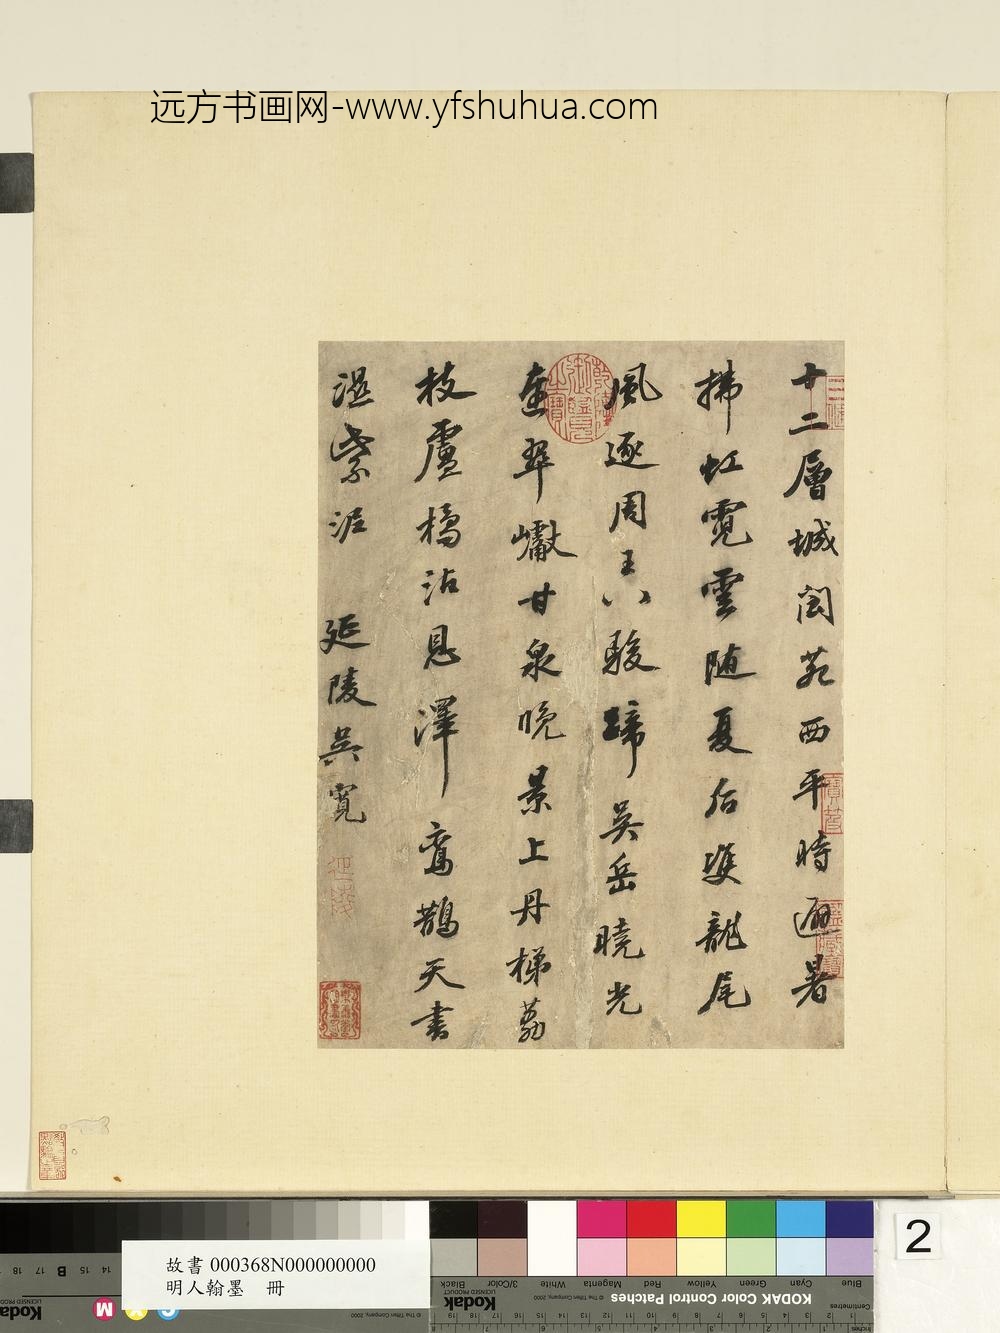 远方书画网-www.yfshuhua.com
十二層城閬苑西平時避暑
拂虹霓雲随夏后雙龍尾
風逐周王八駿蹄吴岳曉光
連翠巘甘泉晚景上丹梯荔
枝盧橘沾恩澤鸞鵲天書
濕紫泥 延陵吴寬
故書 000368N000000000
明人翰墨 冊
2
KODAK Color Control Patches
Blue Cyan Green Yellow Red Magenta White 3/Color Black
Kodak
Kodak